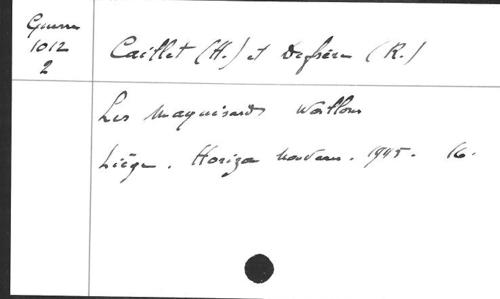 Guerre
1012
2
Caillet (H.) et (R.)
Les maquisards Wallons
Liège. Horizons nouveaux. 1945. 16.